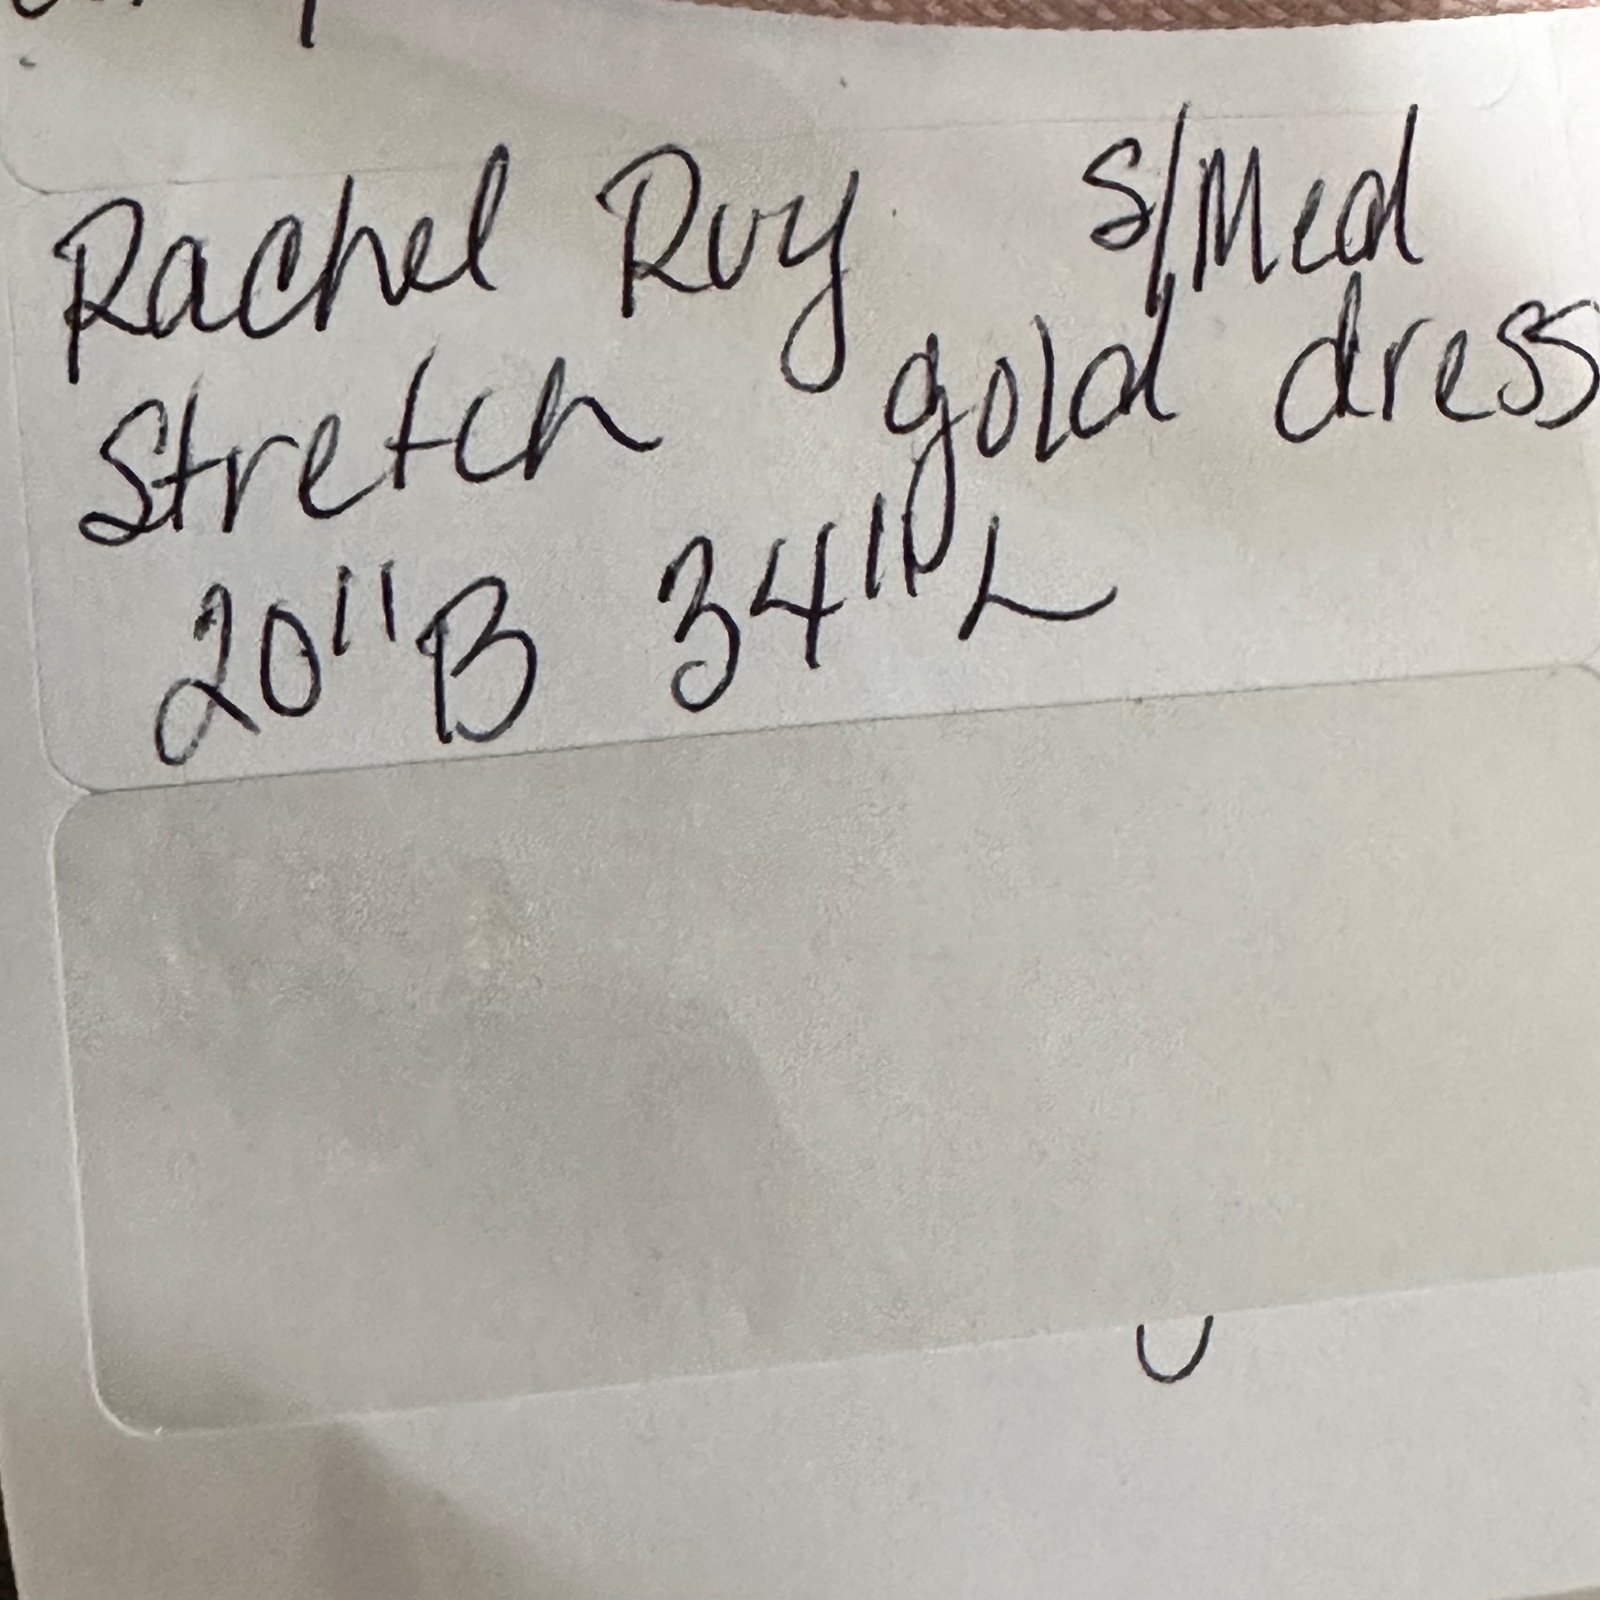 Rachel Roy S/Med
Stretch gold dress
20" B 34" L